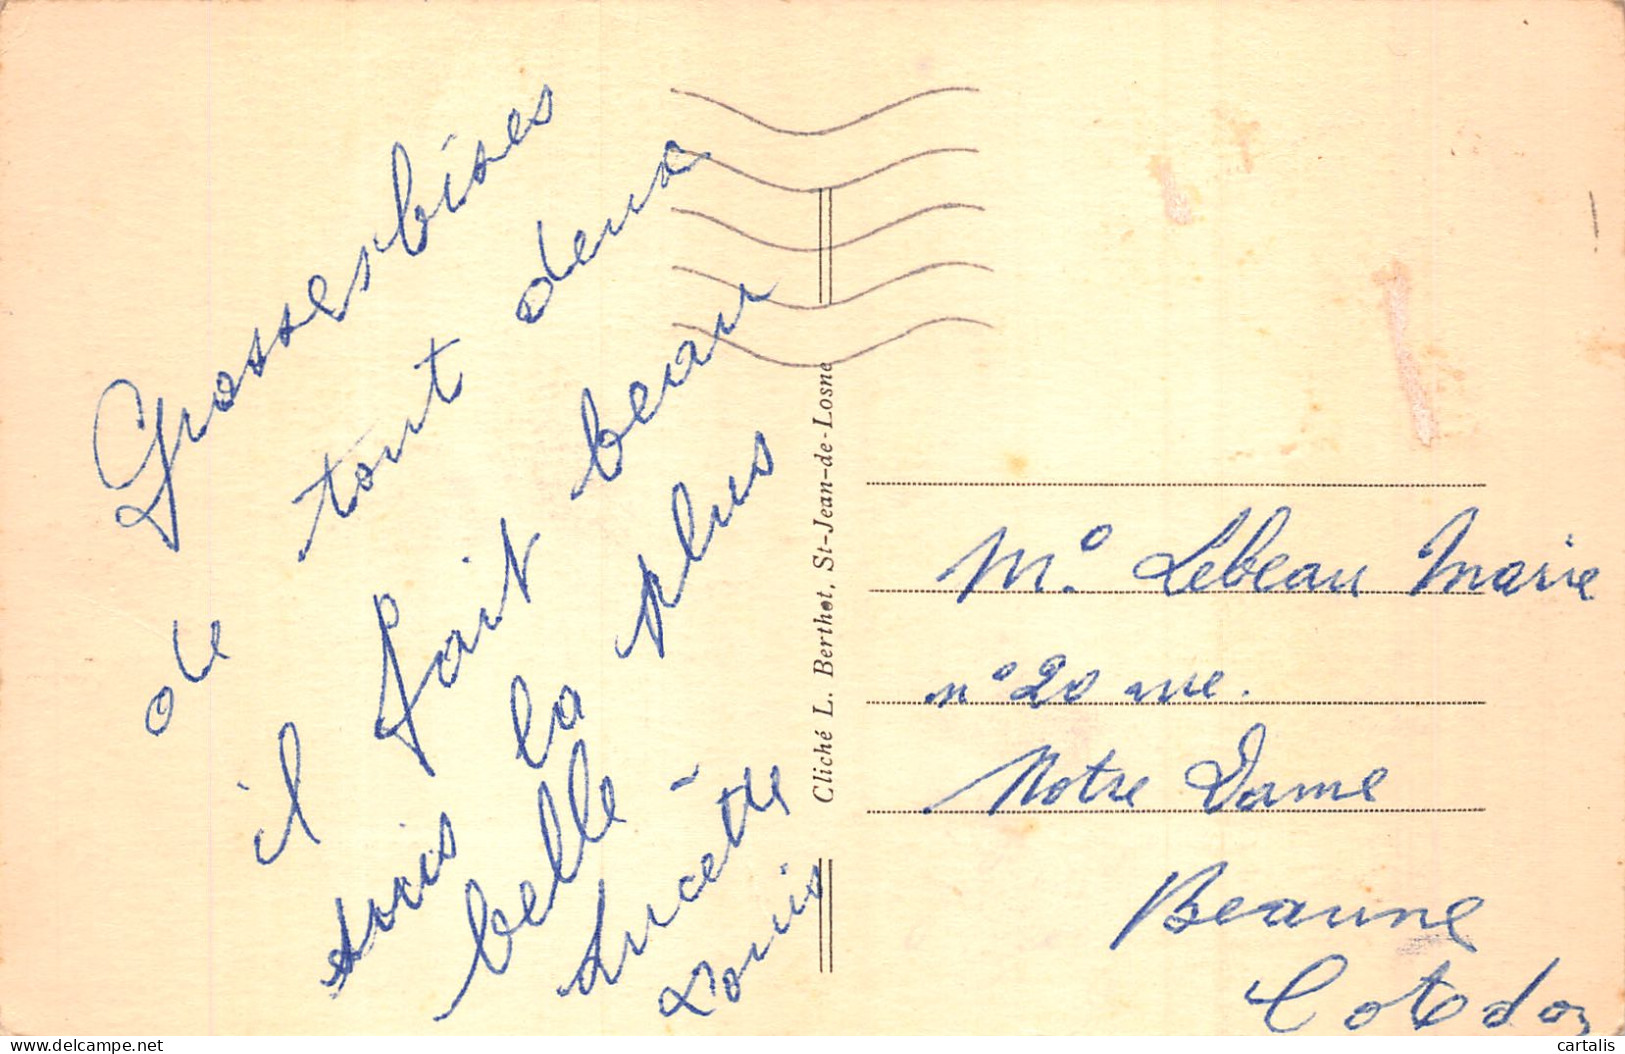 Grosses bises
de tout deux
il fait beau
suis la plus
belle -
Lucette
Louis
Cliché L. Berthot, St-Jean-de-Losne
M.º Lebeau Marie
nº 20 rue.
Notre Dame
Beaune
Cotedor
delcampe.net
cartalis